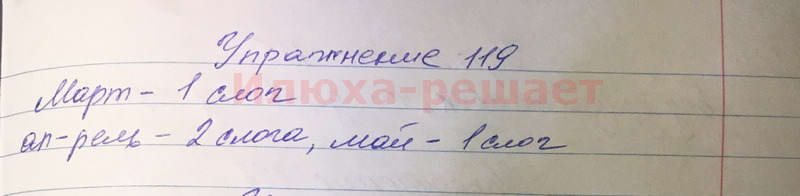 Упражнение 119
Март - 1 слог
Илюха-решает
ап-рель - 2 слога, май - 1 слог